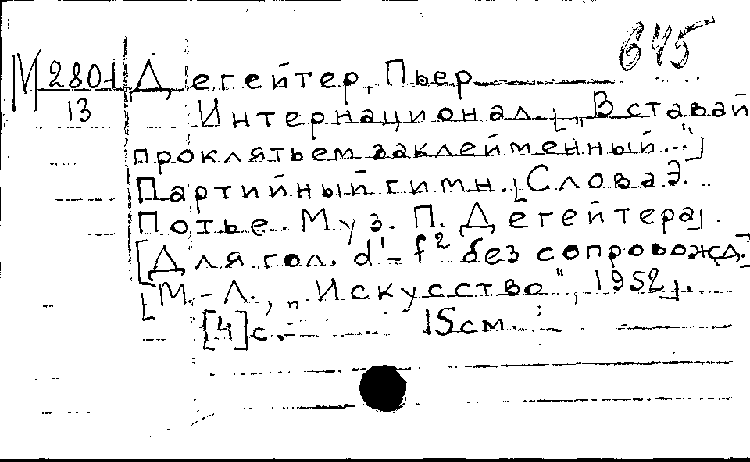 645
М 2801 Дегейтер, Пьер
13 Интернационал. [„Вставай
проклятьем заклейменный..."]
Партийный гимн. [Слова Э.
Потье. Муз. П. Дегейтера].
[Для гол. d'-f² без сопровожд.]
[М.-Л., „Искусство", 1952].
[4]с. 15см.